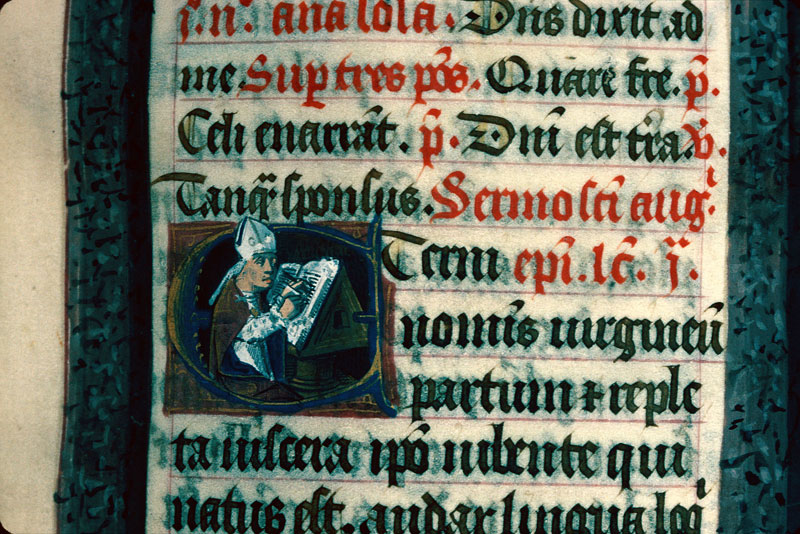 j. n̄. ana sola. Dn̄s dixit ad
me Sup tres pōs. Quare fre. p̄.
Celi enarrāt. p̄. Dn̄i est t̄ra. v̄.
Tanq̄ sponsus. Sermo sc̄i augī.
Eterni ep̄i. lc̄. j.
nomīs virgineū
partum ⁊ reple
ta viscera ip̄o iubente qui
natus est. audax lingua loq̄